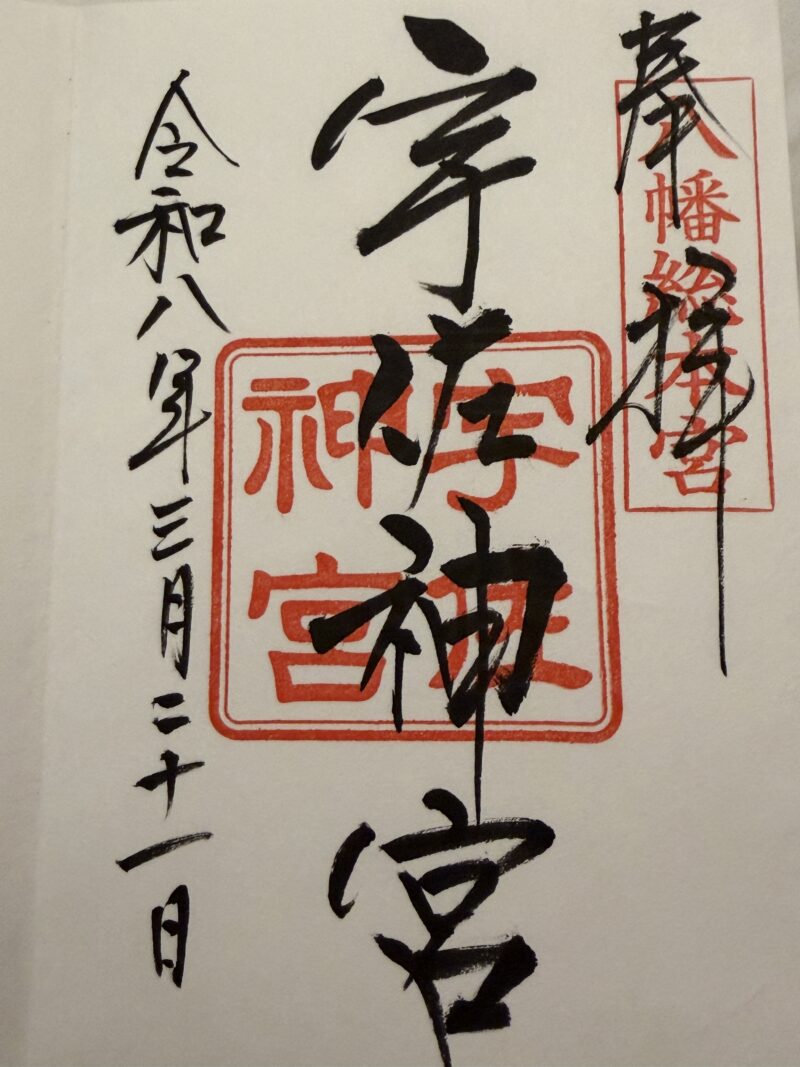 奉拝
八幡総本宮
宇佐神宮
宇佐
神宮
令和八年三月二十一日